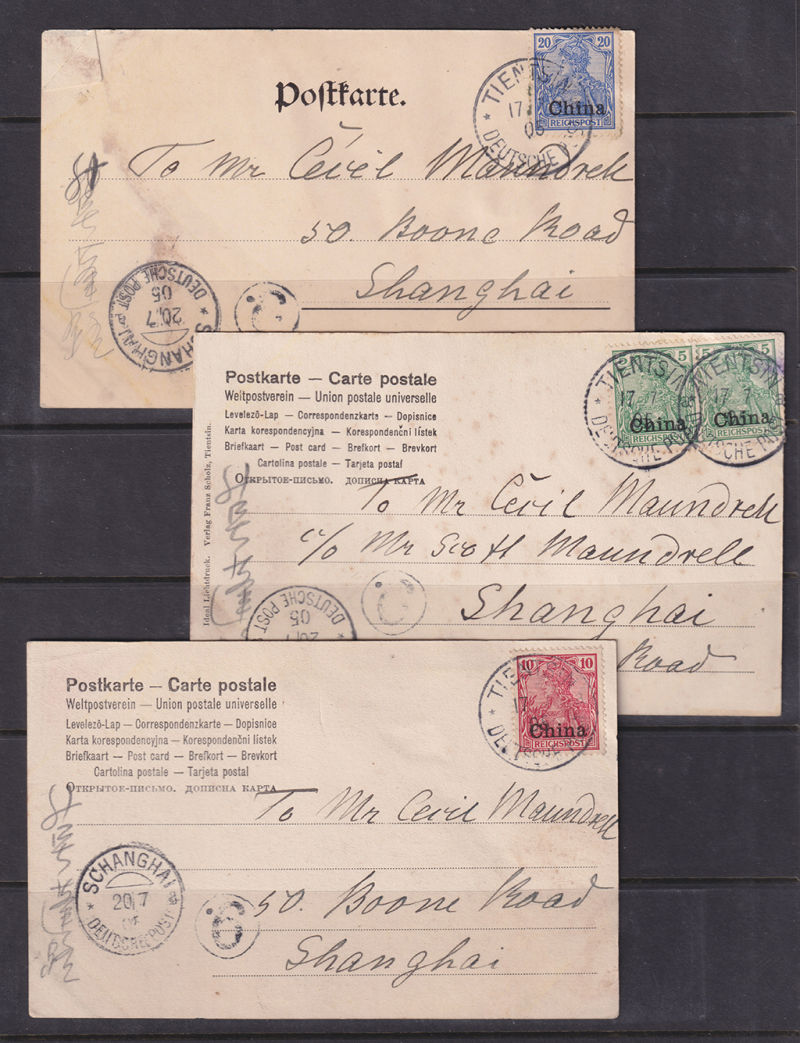 20 20
China
REICHSPOST
* TIENTSIN
17
05
DEUTSCHE
Postkarte.
To Mr Cecil Maundrell
50. Boone Road
Shanghai
* SCHANGHAI *
20/7
05
DEUTSCHE POST
Postkarte — Carte postale
Weltpostverein — Union postale universelle
Levelező-Lap — Correspondenzkarte — Dopisnice
Karta korespondencyjna — Korespondenční lístek
Briefkaart — Post card — Brefkort — Brevkort
Cartolina postale — Tarjeta postal
Открытое-письмо. дописна карта
Ideal Lichtdruck. Verlag Franz Scholz, Tientsin.
5 5
China China
REICHSPOST
* TIENTSIN
17 7
05
TIENTSIN
17 7
To Mr Cecil Maundrell
c/o Mr Scott Maundrell
Shanghai
Road
DEUTSCHE POST
05
20/7
Postkarte — Carte postale
Weltpostverein — Union postale universelle
Levelező-Lap — Correspondenzkarte — Dopisnice
Karta korespondencyjna — Korespondenční lístek
Briefkaart — Post card — Brefkort — Brevkort
Cartolina postale — Tarjeta postal
Открытое-письмо. дописна карта
10 10
China
REICHSPOST
17
To Mr Cecil Maundrell
50. Boone Road
Shanghai
* SCHANGHAI *
20/7
DEUTSCHE POST